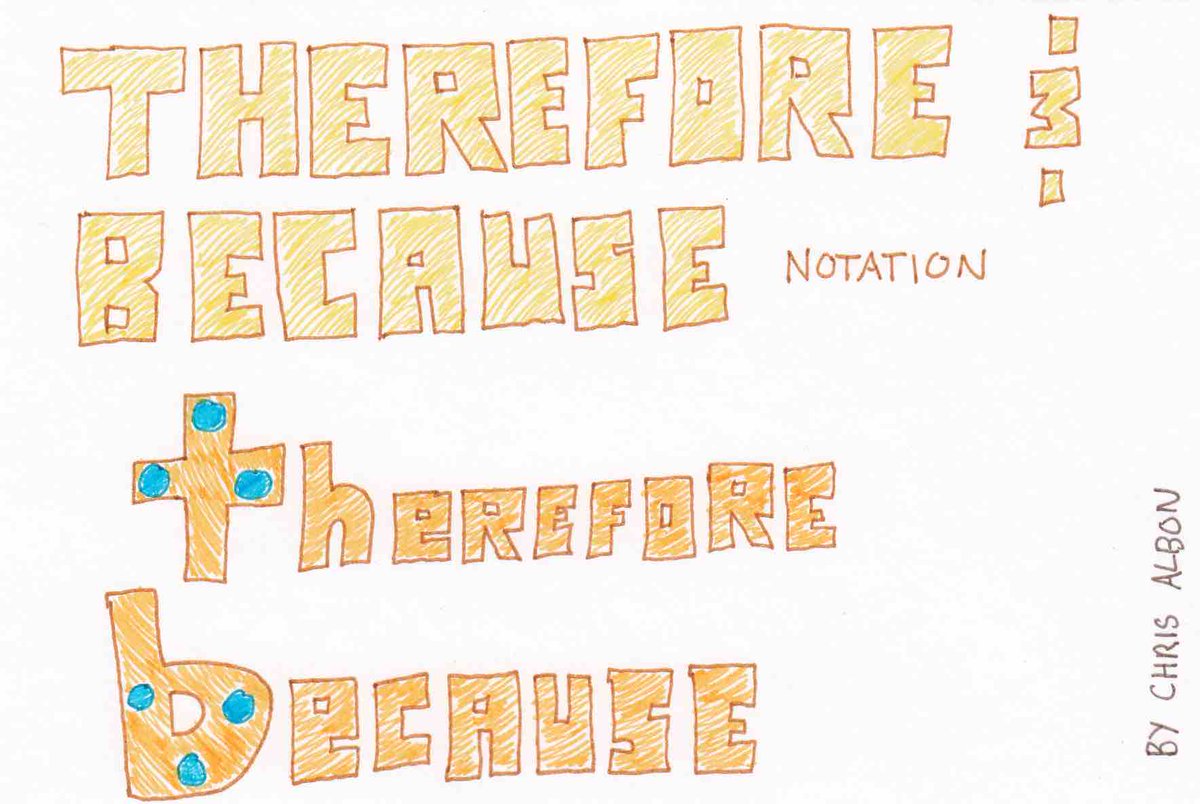 THEREFORE &
BECAUSE NOTATION
thEREFORE
bECAUSE
BY CHRIS ALBON